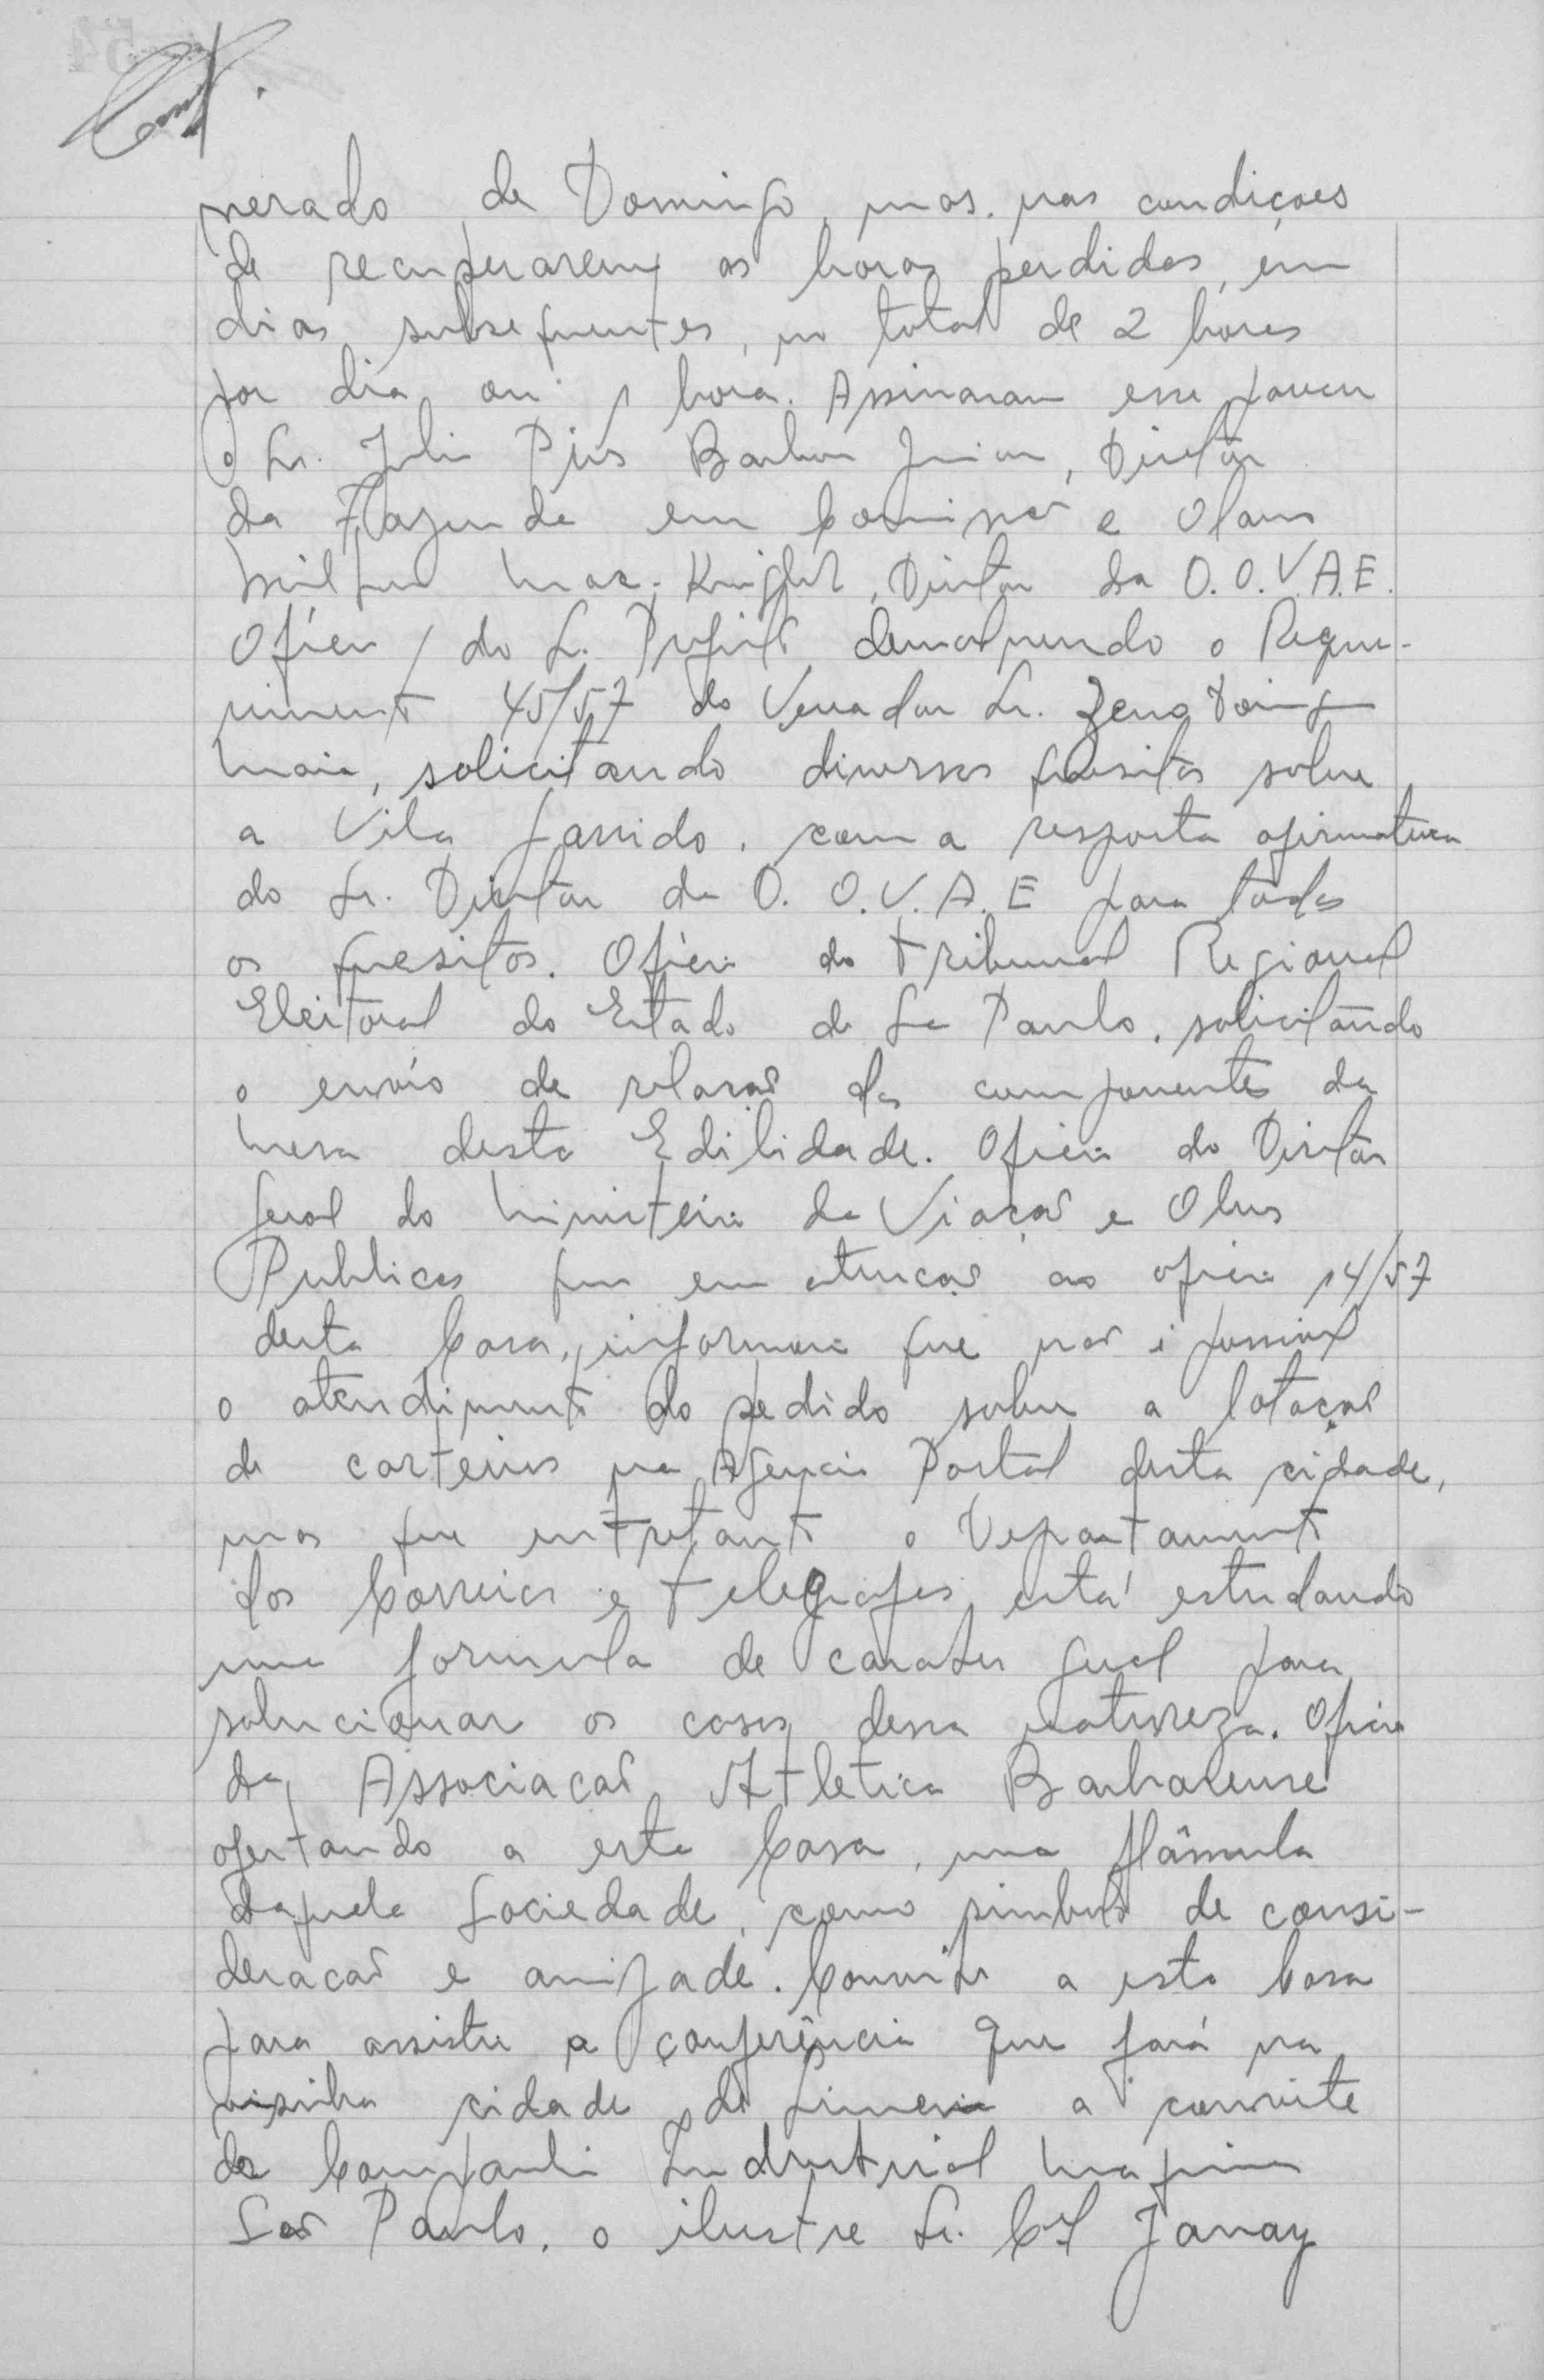 nerado de Domingo, mas. nas condiçoes
de recuperarem as horas perdidas, em
dias subsequentes, no total de 2 horas
por dia ou 1 hora. Assinaram esse parecer
o Sr. Julio Pires Barbosa Junior, Diretor
da Fazenda em Comissão e Olavo
Milton Mac-Knight, Diretor da O.O.V.A.E.
Oficio do Sr. Prefeito devolvendo o Reque-
rimento 45/57 do Vereador Sr. Zeno
Maia, solicitando diversos quesitos sobre
a Vila Garrido, com a resposta afirmativa
do Sr. Diretor da O. O.V.A.E para todos
os quesitos. Oficio do Tribunal Regional
Eleitoral do Estado de São Paulo, solicitando
o envio de relação dos componentes da
Mesa desta Edilidade. Oficio do Diretor
Geral do Ministério da Viação e Obras
Publicas que em atenção ao oficio 14/57
desta Casa, informa que não é possivel
o atendimento do pedido sobre a lotação
de carteiros na Agencia Postal desta cidade,
mas que entretanto o Departamento
dos Correios e Telegrafos está estudando
uma formula de carater geral para
solucionar os casos dessa natureza. Oficio
da Associação Atletica Barbarense
ofertando a esta Casa, uma flâmula
daquela Sociedade, como simbolo de consi-
deração e amizade. Convite a esta Casa
para assistir a conferência que fará na
visinha cidade de Limeira a convite
da Companhia Industrial Maquina
São Paulo, o ilustre Sr.